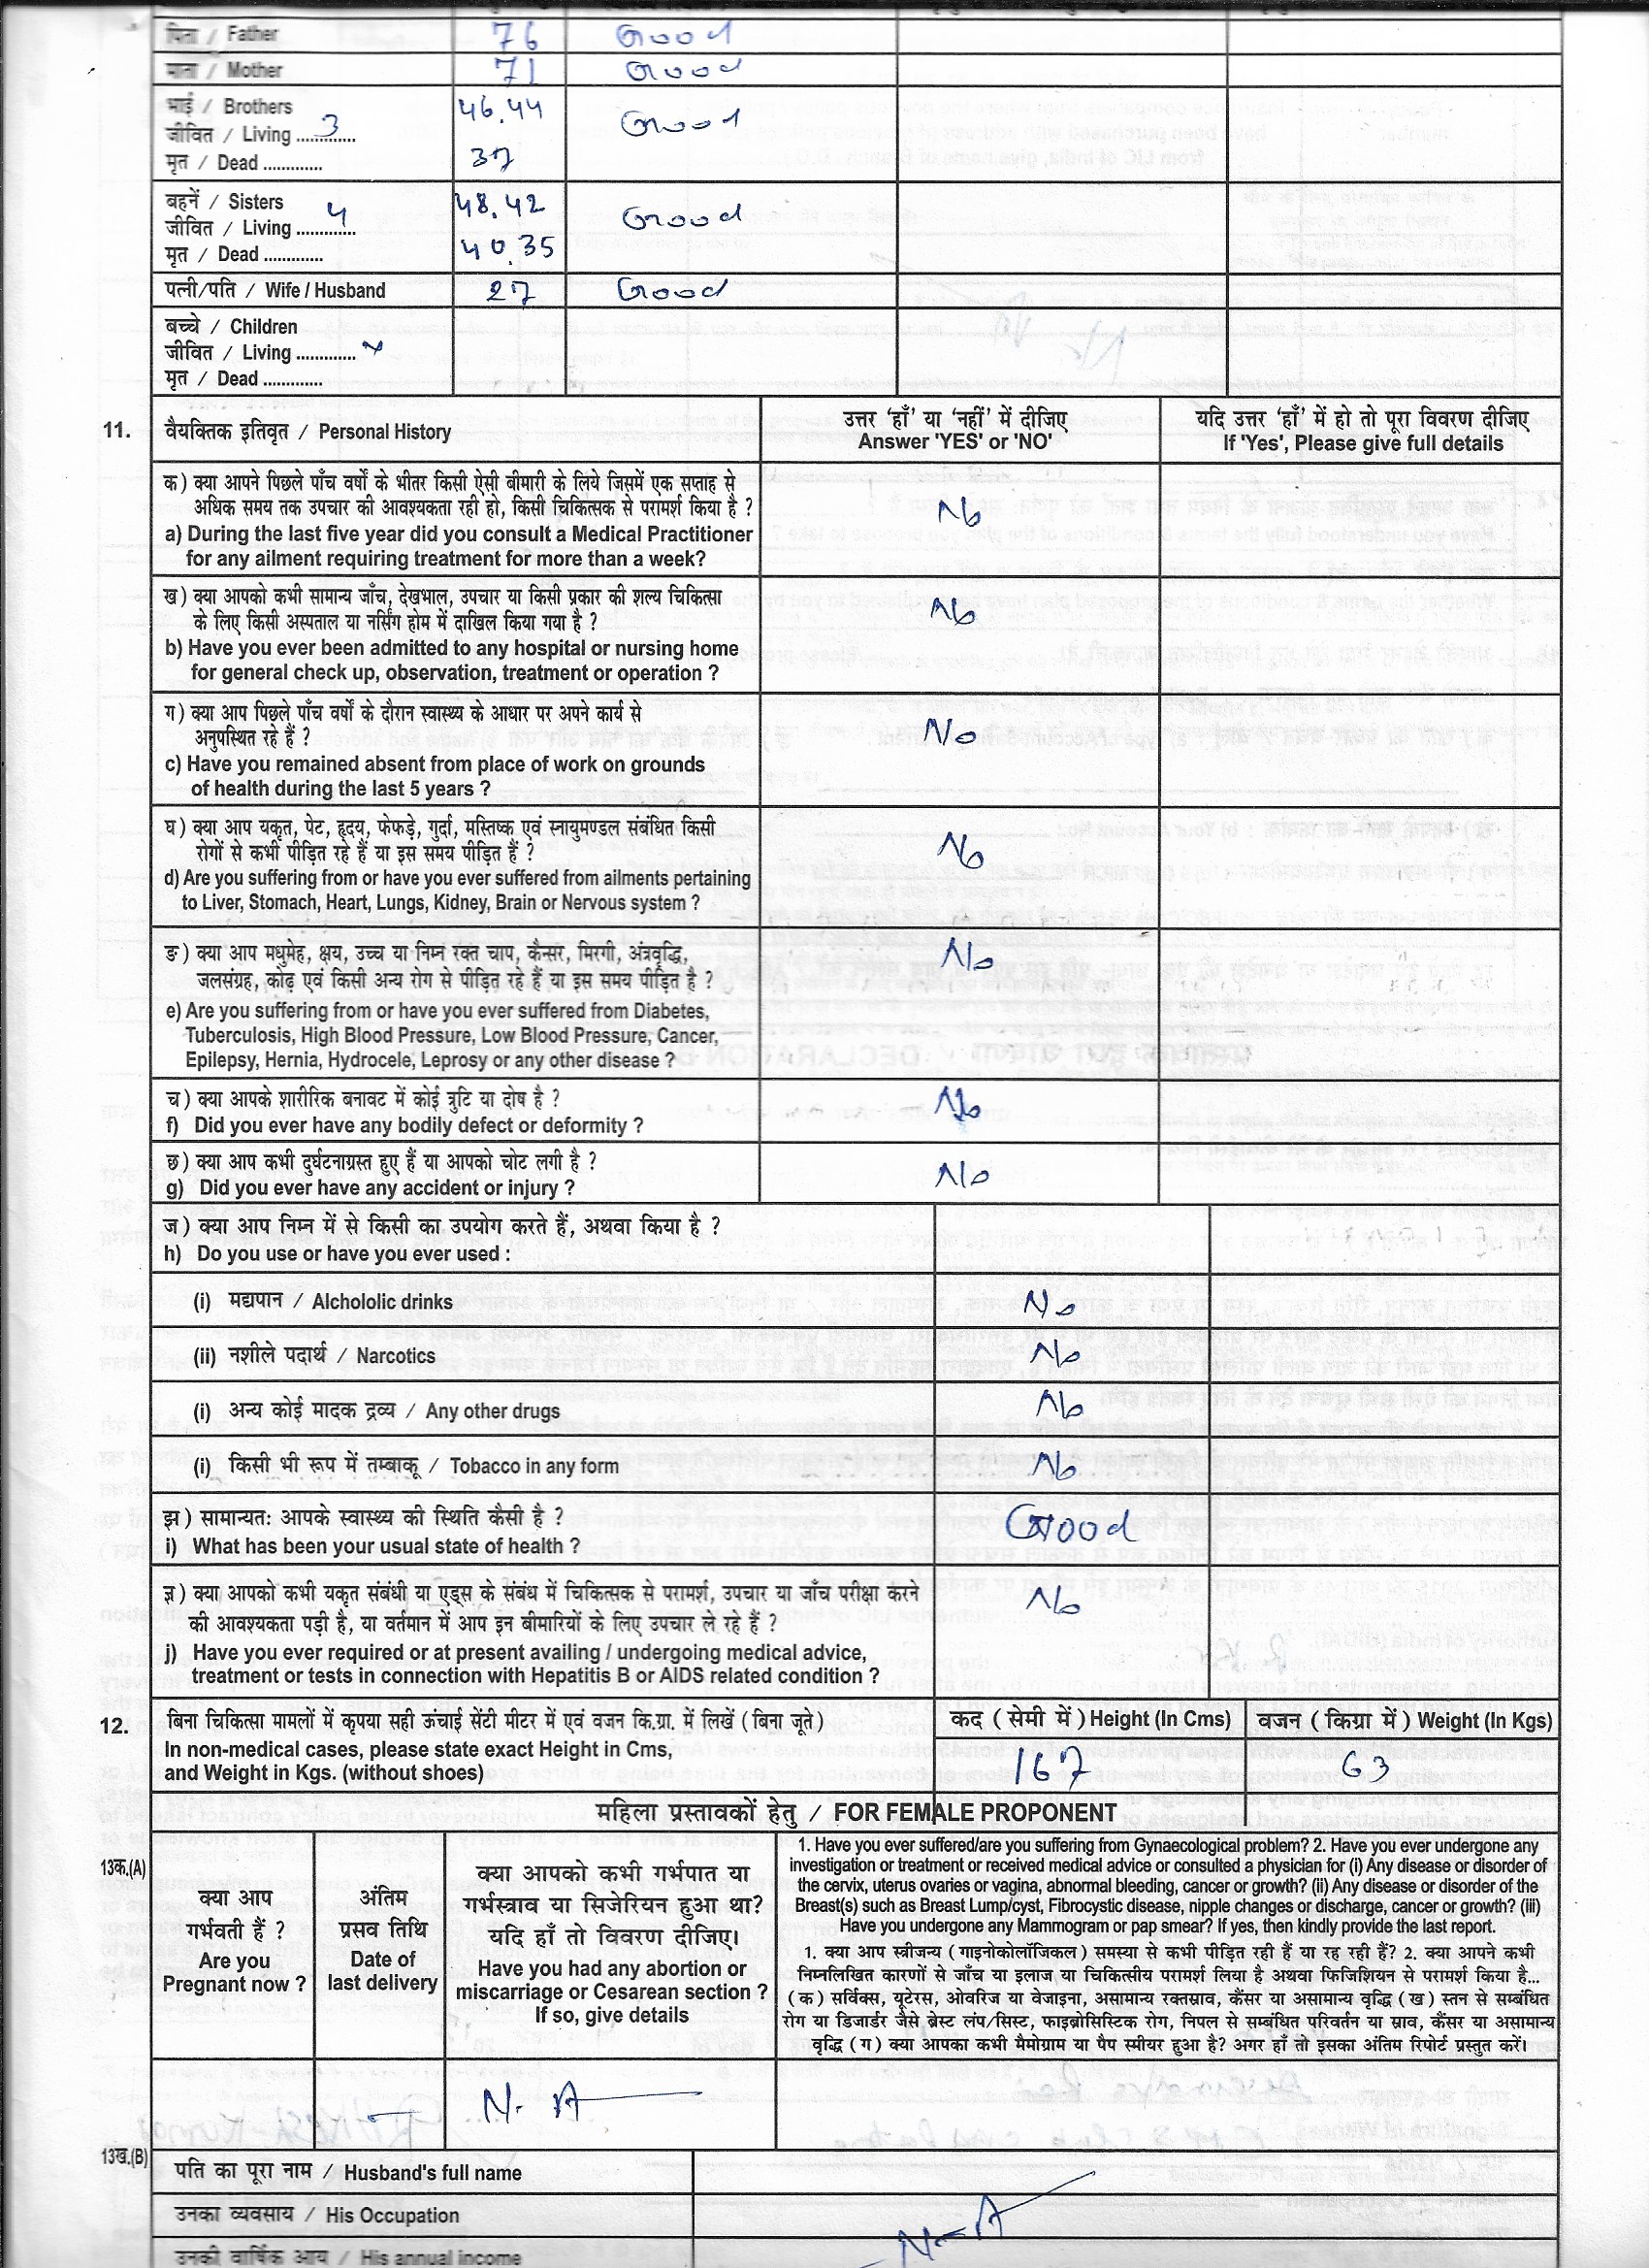 पिता / Father 76 Good
माता / Mother 71 Good
भाई / Brothers 46.44
जीवित / Living ............. 3 Good
मृत / Dead ............. 37
बहनें / Sisters 48.42
जीवित / Living ............. 4 Good
मृत / Dead ............. 40.35
पत्नी/पति / Wife / Husband 27 Good
बच्चे / Children
जीवित / Living .............
मृत / Dead .............
11. वैयक्तिक इतिवृत / Personal History
उत्तर 'हाँ' या 'नहीं' में दीजिए
Answer 'YES' or 'NO'
यदि उत्तर 'हाँ' में हो तो पूरा विवरण दीजिए
If 'Yes', Please give full details
क) क्या आपने पिछले पाँच वर्षों के भीतर किसी ऐसी बीमारी के लिये जिसमें एक सप्ताह से
अधिक समय तक उपचार की आवश्यकता रही हो, किसी चिकित्सक से परामर्श किया है ?
No
a) During the last five year did you consult a Medical Practitioner
for any ailment requiring treatment for more than a week?
ख) क्या आपको कभी सामान्य जाँच, देखभाल, उपचार या किसी प्रकार की शल्य चिकित्सा
के लिए किसी अस्पताल या नर्सिंग होम में दाखिल किया गया है ?
No
b) Have you ever been admitted to any hospital or nursing home
for general check up, observation, treatment or operation ?
ग) क्या आप पिछले पाँच वर्षों के दौरान स्वास्थ्य के आधार पर अपने कार्य से
अनुपस्थित रहे हैं ?
No
c) Have you remained absent from place of work on grounds
of health during the last 5 years ?
घ) क्या आप यकृत, पेट, हृदय, फेफड़े, गुर्दा, मस्तिष्क एवं स्नायुमण्डल संबंधित किसी
रोगों से कभी पीड़ित रहे हैं या इस समय पीड़ित हैं ?
No
d) Are you suffering from or have you ever suffered from ailments pertaining
to Liver, Stomach, Heart, Lungs, Kidney, Brain or Nervous system ?
ङ) क्या आप मधुमेह, क्षय, उच्च या निम्न रक्त चाप, कैन्सर, मिरगी, अंत्रवृद्धि,
जलसंग्रह, कोढ़ एवं किसी अन्य रोग से पीड़ित रहे हैं या इस समय पीड़ित है ?
No
e) Are you suffering from or have you ever suffered from Diabetes,
Tuberculosis, High Blood Pressure, Low Blood Pressure, Cancer,
Epilepsy, Hernia, Hydrocele, Leprosy or any other disease ?
च) क्या आपके शारीरिक बनावट में कोई त्रुटि या दोष है ?
f) Did you ever have any bodily defect or deformity ?
No
छ) क्या आप कभी दुर्घटनाग्रस्त हुए हैं या आपको चोट लगी है ?
g) Did you ever have any accident or injury ?
No
ज) क्या आप निम्न में से किसी का उपयोग करते हैं, अथवा किया है ?
h) Do you use or have you ever used :
(i) मद्यपान / Alchololic drinks No
(ii) नशीले पदार्थ / Narcotics No
(i) अन्य कोई मादक द्रव्य / Any other drugs No
(i) किसी भी रूप में तम्बाकू / Tobacco in any form No
झ) सामान्यतः आपके स्वास्थ्य की स्थिति कैसी है ?
i) What has been your usual state of health ?
Good
ञ) क्या आपको कभी यकृत संबंधी या एड्स के संबंध में चिकित्सक से परामर्श, उपचार या जाँच परीक्षा करने
की आवश्यकता पड़ी है, या वर्तमान में आप इन बीमारियों के लिए उपचार ले रहे हैं ?
No
j) Have you ever required or at present availing / undergoing medical advice,
treatment or tests in connection with Hepatitis B or AIDS related condition ?
12. बिना चिकित्सा मामलों में कृपया सही ऊंचाई सेंटी मीटर में एवं वजन कि.ग्रा. में लिखें (बिना जूते)
In non-medical cases, please state exact Height in Cms,
and Weight in Kgs. (without shoes)
कद (सेमी में) Height (In Cms) वजन (किग्रा में) Weight (In Kgs)
167 63
महिला प्रस्तावकों हेतु / FOR FEMALE PROPONENT
13क.(A)
क्या आप
गर्भवती हैं ?
Are you
Pregnant now ?
अंतिम
प्रसव तिथि
Date of
last delivery
क्या आपको कभी गर्भपात या
गर्भस्त्राव या सिजेरियन हुआ था?
यदि हाँ तो विवरण दीजिए।
Have you had any abortion or
miscarriage or Cesarean section ?
If so, give details
1. Have you ever suffered/are you suffering from Gynaecological problem? 2. Have you ever undergone any
investigation or treatment or received medical advice or consulted a physician for (i) Any disease or disorder of
the cervix, uterus ovaries or vagina, abnormal bleeding, cancer or growth? (ii) Any disease or disorder of the
Breast(s) such as Breast Lump/cyst, Fibrocystic disease, nipple changes or discharge, cancer or growth? (iii)
Have you undergone any Mammogram or pap smear? If yes, then kindly provide the last report.
1. क्या आप स्त्रीजन्य (गाइनोकोलॉजिकल) समस्या से कभी पीड़ित रही हैं या रह रही हैं? 2. क्या आपने कभी
निम्नलिखित कारणों से जाँच या इलाज या चिकित्सीय परामर्श लिया है अथवा फिजिशियन से परामर्श किया है...
(क) सर्विक्स, यूटेरस, ओवरिज या वेजाइना, असामान्य रक्तस्राव, कैंसर या असामान्य वृद्धि (ख) स्तन से सम्बंधित
रोग या डिजार्डर जैसे ब्रेस्ट लंप/सिस्ट, फाइब्रोसिस्टिक रोग, निपल से सम्बंधित परिवर्तन या स्राव, कैंसर या असामान्य
वृद्धि (ग) क्या आपका कभी मैमोग्राम या पैप स्मीयर हुआ है? अगर हाँ तो इसका अंतिम रिपोर्ट प्रस्तुत करें।
N. A
13ख.(B)
पति का पूरा नाम / Husband's full name
उनका व्यवसाय / His Occupation
N-A
उनकी वार्षिक आय / His annual income